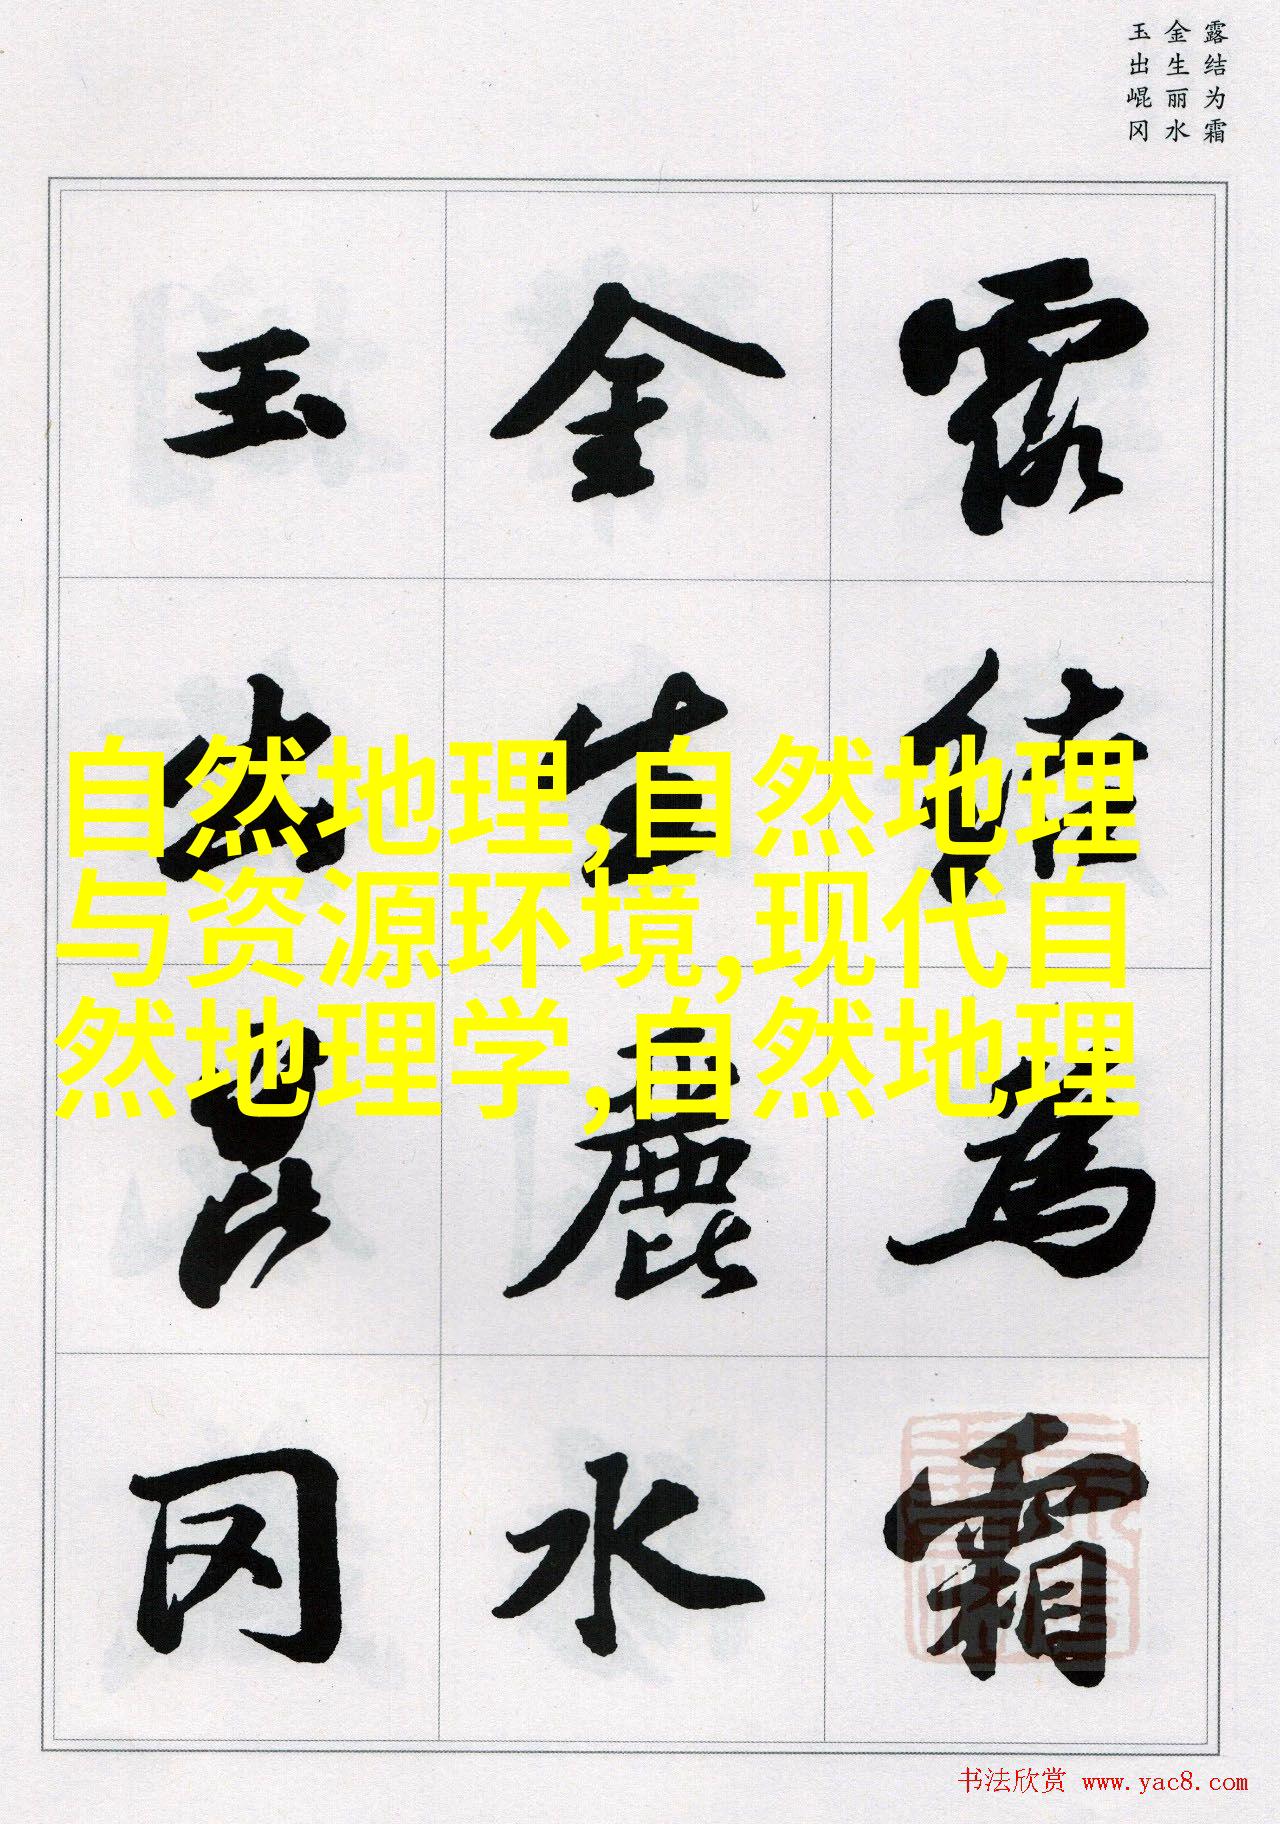 露结为霜
金生丽水
玉出崐冈
露結為霜
金生麗水
玉出崑冈
自然地理,自然地理
与资源环境,现代自
然地理学,自然地理
书法欣赏 www.yac8.com